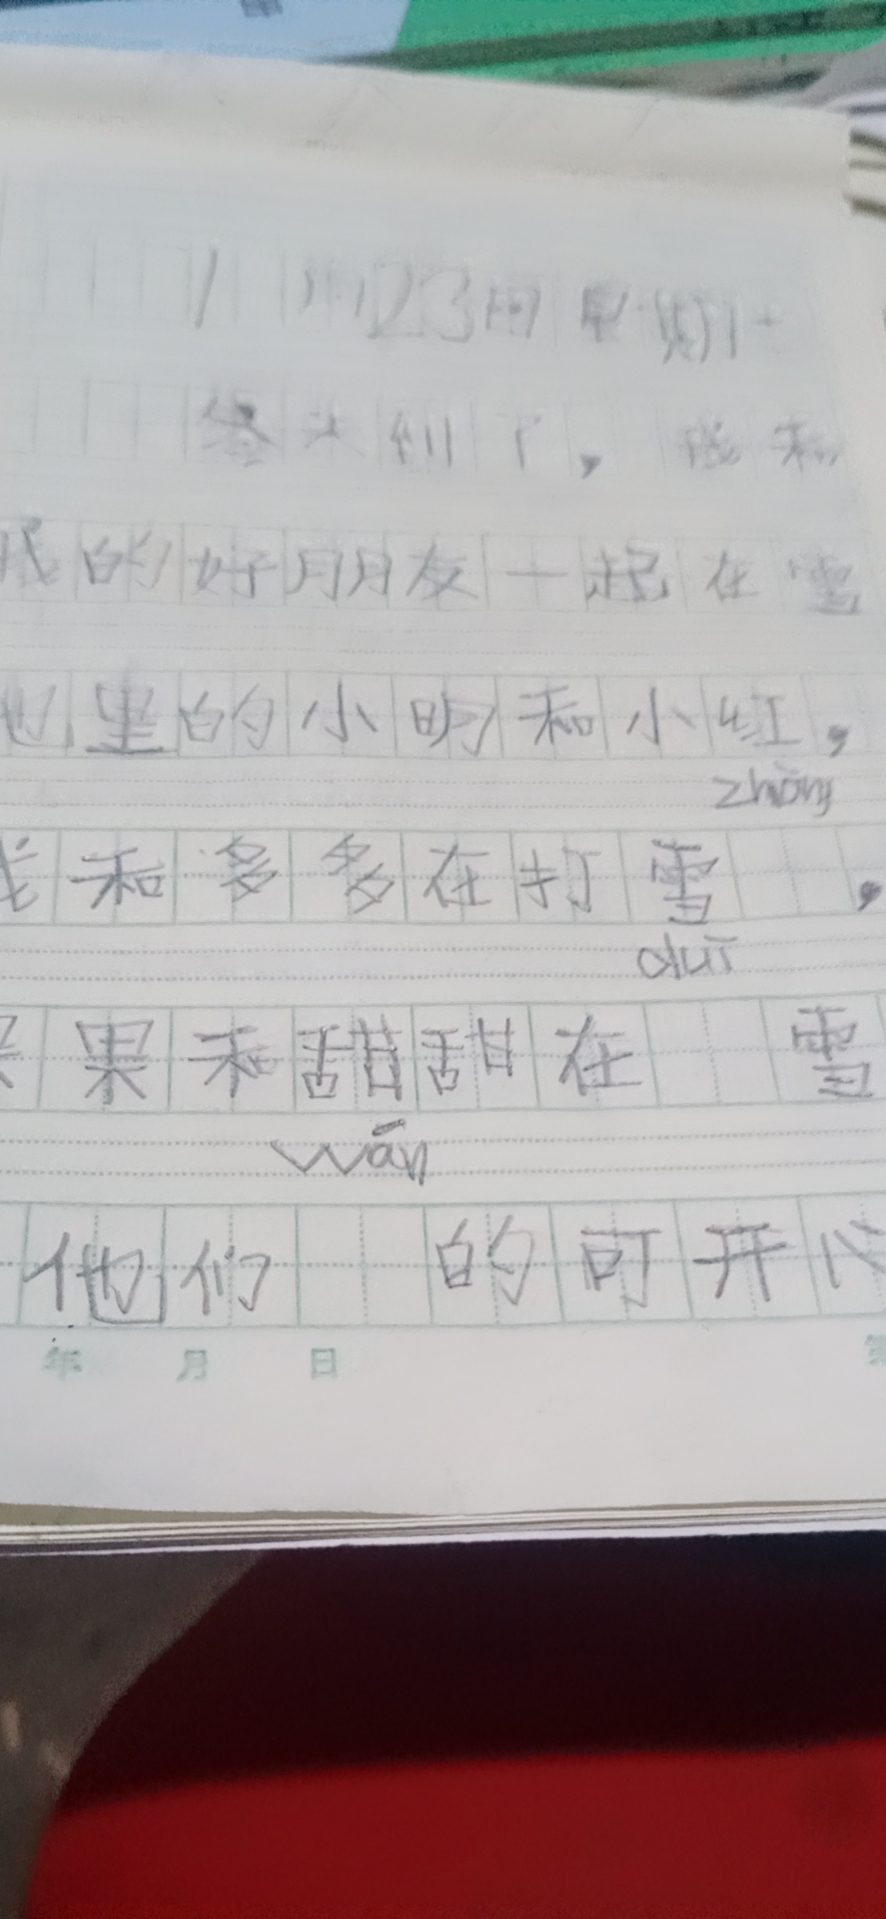 23日 星期
冬天到了，我和
我的好朋友一起在雪
地里的小明和小红，
zhòng
我和多多在打雪，
duī
果和甜甜在 雪
wán
他们 的可开心
年 月 日